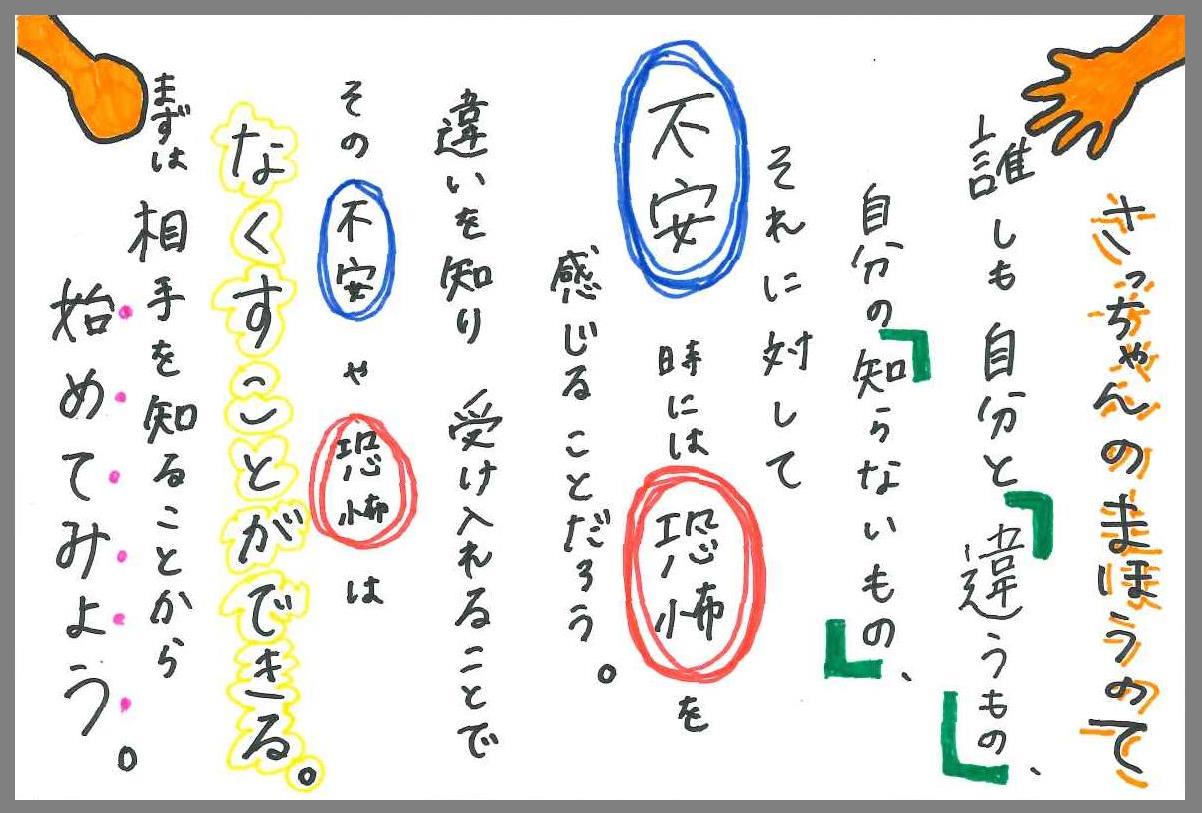 さっちゃんのまほうのて
誰しも自分と「違うもの」、
自分の「知らないもの」、
それに対して
不安 時には 恐怖を
感じることだろう。
違いを知り 受け入れることで
その 不安 や 恐怖 は
なくすことができる。
まずは 相手を知ることから
始めてみよう。